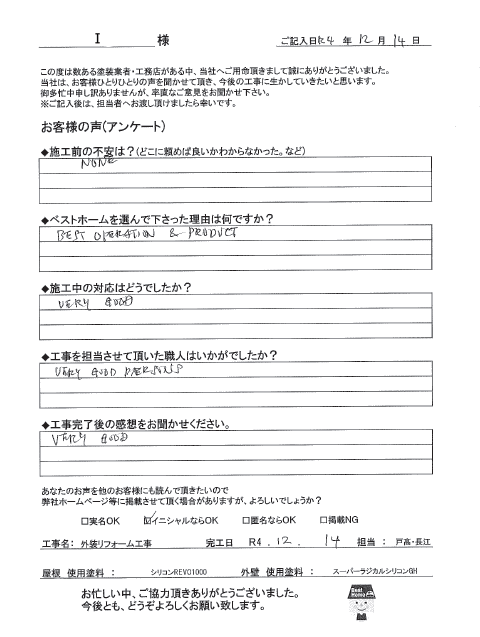 I 様
ご記入日R4 年 12 月 14 日
この度は数ある塗装業者・工務店がある中、当社へご用命頂きまして誠にありがとうございました。
当社は、お客様ひとりひとりの声を聞かせて頂き、今後の工事に生かしていきたいと思います。
御多忙中申し訳ありませんが、率直なご意見をお聞かせ下さい。
※ご記入後は、担当者へお渡し頂けましたら幸いです。
お客様の声(アンケート)
◆施工前の不安は?(どこに頼めば良いかわからなかった。など)
NONE
◆ベストホームを選んで下さった理由は何ですか?
BEST OPERATION & PRODUCT
◆施工中の対応はどうでしたか?
VERY GOOD
◆工事を担当させて頂いた職人はいかがでしたか?
VERY GOOD PERSONS
◆工事完了後の感想をお聞かせください。
VERY GOOD
あなたのお声を他のお客様にも読んで頂きたいので
弊社ホームページ等に掲載させて頂く場合がありますが、よろしいでしょうか?
□実名OK ☑イニシャルならOK □匿名ならOK □掲載NG
工事名: 外装リフォーム工事 完工日 R4 . 12 . 14 担当: 戸高・長江
屋根 使用塗料: シリコンREVO1000 外壁 使用塗料: スーパーラジカルシリコンGH
お忙しい中、ご協力頂きありがとうございました。
今後とも、どうぞよろしくお願い致します。
Best Home